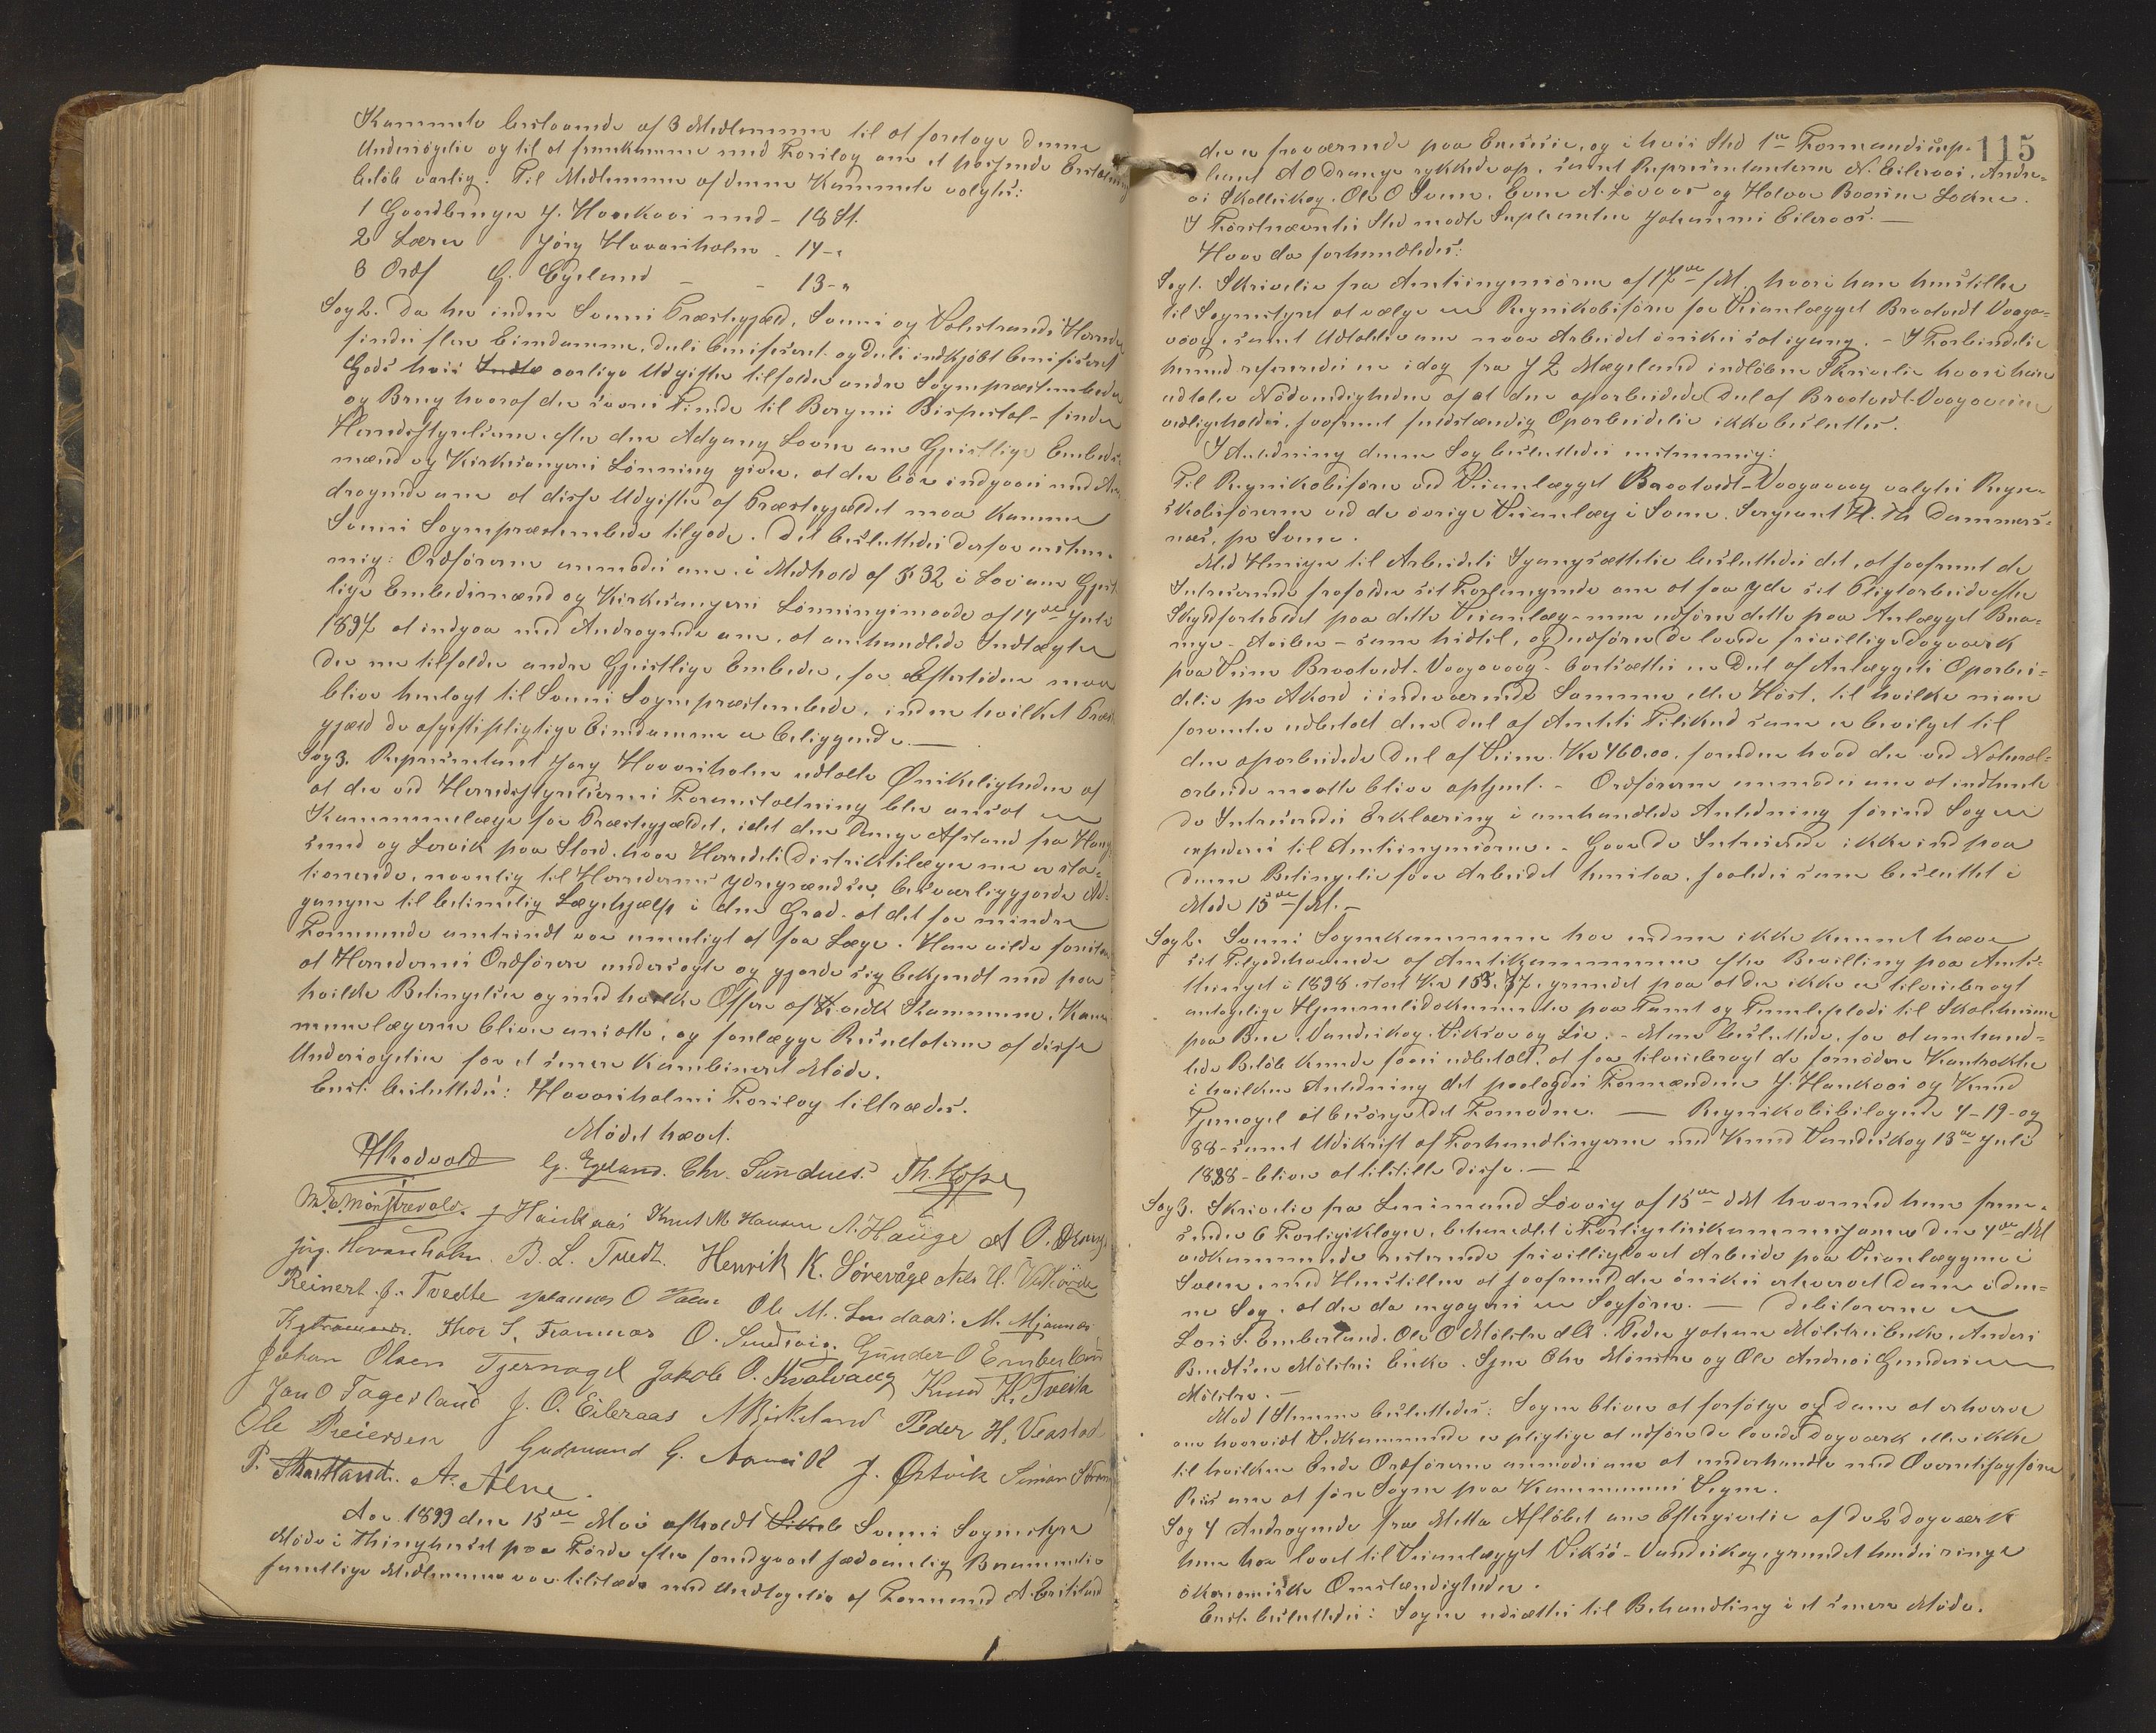 Kommite bestaaende af 3 Medlemmer til at foretage denne
Undersøgelse og til at fremkomme med Forslag om et passende Erstatning
beløb aarlig. Til Medlemmer af denne Kommite valgtes:
1 Gaardbruger J. Haukaas med - 18 St.
2 Lærer Jørg Hovaresholm - 14 - "
3 Ordf G. Egeland - - 13 - "
Sag 2. Da her inden Søens Præstegjæld, Søens og Valestrands Herreder
findes flere Eiendomme, dels beneficeret og dels indkjøbt beneficeret
Gods hvis aarlige Udgifter tilfalder andre Sogneprestembeder
og Brug hvoraf den svares Tiende til Bergens Bispestol - finder
Herredsstyrelserne efter den Adgang Loven om Geistlige Embeds-
mænd og Kirkesangeres Lønning giver, at der bør indgaaes med An-
dragende om at disse Udgifter af Præstegjældet maa komme
Søens Sogneprestembede tilgode. Det besluttedes derfor enstem-
mig: Ordførerne anmodes om i Medhold af § 32 i Lov om Geist-
lige Embedsmænd og Kirkesangeres Lønningsmaade af 14de Juli
1897 at indgaa med Andragende om, at omhandlede Indtægter
der nu tilfalder andre Geistlige Embeder, for Eftertiden maa
blive henlagt til Søens Sogneprestembede, inden hvilket Præste-
gjæld de afgiftspligtige Eiendomme er beliggende. —
Sag 3. Repræsentant Jørg Hovaresholm udtalte Ønskeligheden af
at der ved Herredsstyrelsernes Foranstaltning blev ansat en
Kommunelæge for Præstegjældet, idet den lange Afstand fra Hauge-
sund og Lervik paa Stord, hvor Herredets Distriktslæger nu er sta-
tionerede, navnlig til Herredernes Ydregrændser, besværliggjorde Ad-
gangen til betimelig Lægehjælp i den Grad, at det for mindre
Formuende omtrent var umuligt at faa Læge. Han vilde foreslaa
at Herredernes Ordførere undersøgte og gjorde sig bekjendt med paa
hvilke Betingelser og med hvilke Offere af Kommune, Kom-
munelægerne bliver ansatte, og forelægge Resultaterne af disse
Undersøgelser for et senere kombineret Møde.
Enst. besluttedes: Hovaresholms Forslag tiltrædes.
Mødet hævet.
G. Egeland. Chr. Sundnes. Th. Hope
J Haukaas Knut M Hausen A. Hauge A O. Drange
Jørg. Hovaresholm. B. L. Tvedt. Henrik K. Sørevåge Nils H.
Reinert J. Tvedte Johannes O Ole M. M. Mjaanes
Thor S. Framnæs O. Sundvig. Gunder O Emberland
Johan Olsen Tjernagel Jakob O. Kvalvaag Knud K. Tveita
Jan O Fagerland J. O. Eileraas N Birkeland Peder H. Veastad
Ole Reiersen Gudmund G. J. Østvik Simon
P. A. Alne.
Aar 1899 den 15de Mai afholdt Søens Sognestyre
Møde i Thinghuset paa Førde efter foregaaet sædvanlig Berammelse
samtlige Medlemmer var tilstede med Undtagelse af Formand A.
115
der er fraværende paa Exersis, og i hvis Sted 1ste Formandssup-
leant A O Drange rykkede op, samt Repræsentanterne N. Eileraas, Andre-
as Skolleskog, Ole O Søen, Even A. Løvaas og Halvor Baarsen Lokna.
I Førstnævntes Sted mødte Suppleanten Johannes Eileraas. —
Hvor da forhandledes:
Sag 1. Skrivelse fra Amtsingeniøren af 17de f.M. hvori han henstiller
til Sognestyret at vælge en Regnskabsfører for Veianlægget Braatvedt Vaage-
vaag, samt Udtalelse om naar Arbeidet ønskes sat igang. - I Forbindelse
hermed refereredes en idag fra J Z Mægeland indløben Skrivelse hvori han
udtaler Nødvendigheden af at den oparbeidede Del af Braatvedt-Vaageveien
vedligeholdes, saafremt fuldstændig Oparbeidelse ikke besluttes.
I Anledning denne Sag besluttedes enstemmig:
Til Regnskabsfører ved Veianlægget Braatvedt-Vaagevaag valgtes Regn-
skabsføreren ved de øvrige Veianlæg i Søen, Sergeant H. Th Dommers-
næs, pr Søen.
Med Hensyn til Arbeidets Igangsættelse besluttedes det, at saafremt de
Interesserede frafalder sit Forlangende om at faa yde sit Pligtarbeide efter
Skyldforholdet paa dette Veianlæg, men udfører dette paa Anlægget Bua-
nge - som hidtil, og udfører de lovede frivillige Dagværk
paa Veien Braatvedt-Vaagevaag - bortsættes en Del af Anlæggets Oparbei-
delse pr Akord i indeværende Sommer eller Høst, til hvilke man
forventer udbetalt den Del af Amtets Tilskud som er bevilget til
den oparbeidede Del af Veien, Kr 460.00, foruden hvad der ved Natural-
arbeide maatte blive optjent. - Ordføreren anmodes om at indhente
de Interesseredes Erklæring i omhandlede Anledning førend Sagen
expederes til Amtsingeniøren. - Gaar de Interesserede ikke ind paa
denne Betingelse faar Arbeidet henstaa, saaledes som besluttet i
Møde 15de f.M. —
Sag 2. Søens Sognekommune har endnu ikke kunnet hæve
sit Tilgodehavende af Amtskommunen efter Bevilling paa Amts-
thinget i 1898, stort Kr 155.77, grundet paa at der ikke er tilveiebragt
antagelige Hjemmelsdokumenter paa Tomt og Tomteplads til Skolehusene
paa Bue, Vandeskog, Viksøe og Lie. - Man besluttede, for at omhand-
lede Beløb kunde faaes udbetalt, at faa tilveiebragt de fornødne Kontrakter
i hvilken Anledning det paalagdes Formændene J. Haukaas og Knud
Tjernagel at besørge det Fornødne. — Regnskabsbilagene 4-19-og
88 - samt Udskrift af Forhandlingerne med Knud Vandeskog 13de Juli
1888 - bliver at tilstille disse. —
Sag 3. Skrivelse fra Lensmand Løvvig af 15de dM hvormed han frem-
sender 6 Forligsklager, behandlet i Forligelseskommissionen den 4de dM
vedkommende resterende frivilligt lovet Arbeide paa Veianlæggene i
Søen, med Henstillen at saafremt der ønskes erhvervet Dom i den-
ne Sag, at der da engageres en Sagfører. — Debitorerne er
Lars S. Emberland, Ole O Mølstre d.Æ. Peder Johan Mølstres Enke, Anders
Bendtsen Mølstres Enke, Syn Chr Mønstre og Ole Andreas Gundersen
Mølstre. —
Mod 1 Stemme besluttedes: Sagen bliver at forfølge og Dom at erhverve
om hvorvidt Vedkommende er pligtige at udføre de lovede Dagværk eller ikke
til hvilken Ende Ordføreren anmodes om at underhandle med Overretssagfører
Reis om at føre Sagen paa Kommunens Vegne.
Sag 4 Andragende fra Mette Afløbet om Eftergivelse af de 2 Dagværk
hun har lovet til Veianlægget Viksø-Vandeskog, grundet hendes ringe
økonomiske Omstændigheder.
Enst. besluttedes: Sagen udsættes til Behandling i et senere Møde.